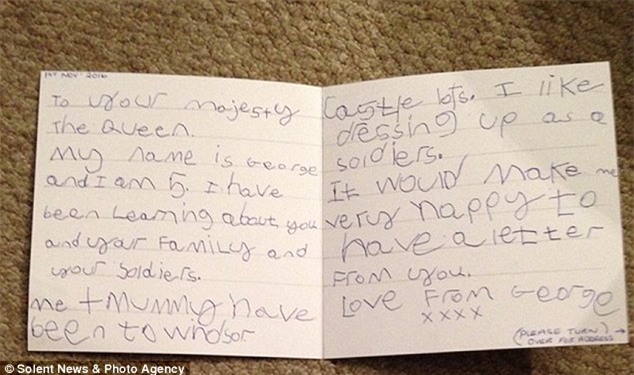 1st Nov 2016
To your majesty
The Queen.
My name is George
and I am 5. I have
been Learning about you
and your Family and
your Soldiers.
me + Mummy have
been to windsor
Castle lots. I like
dressing up as a
soldiers.
It would make me
very happy to
have a letter
From you.
Love From George
xxxx
(PLEASE TURN) →
OVER FOR ADDRESS
© Solent News & Photo Agency